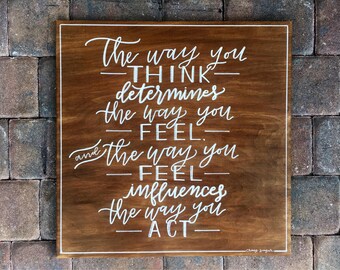 The way you
THINK
determines
the way you
FEEL,
and the way you
FEEL
influences
the way you
ACT